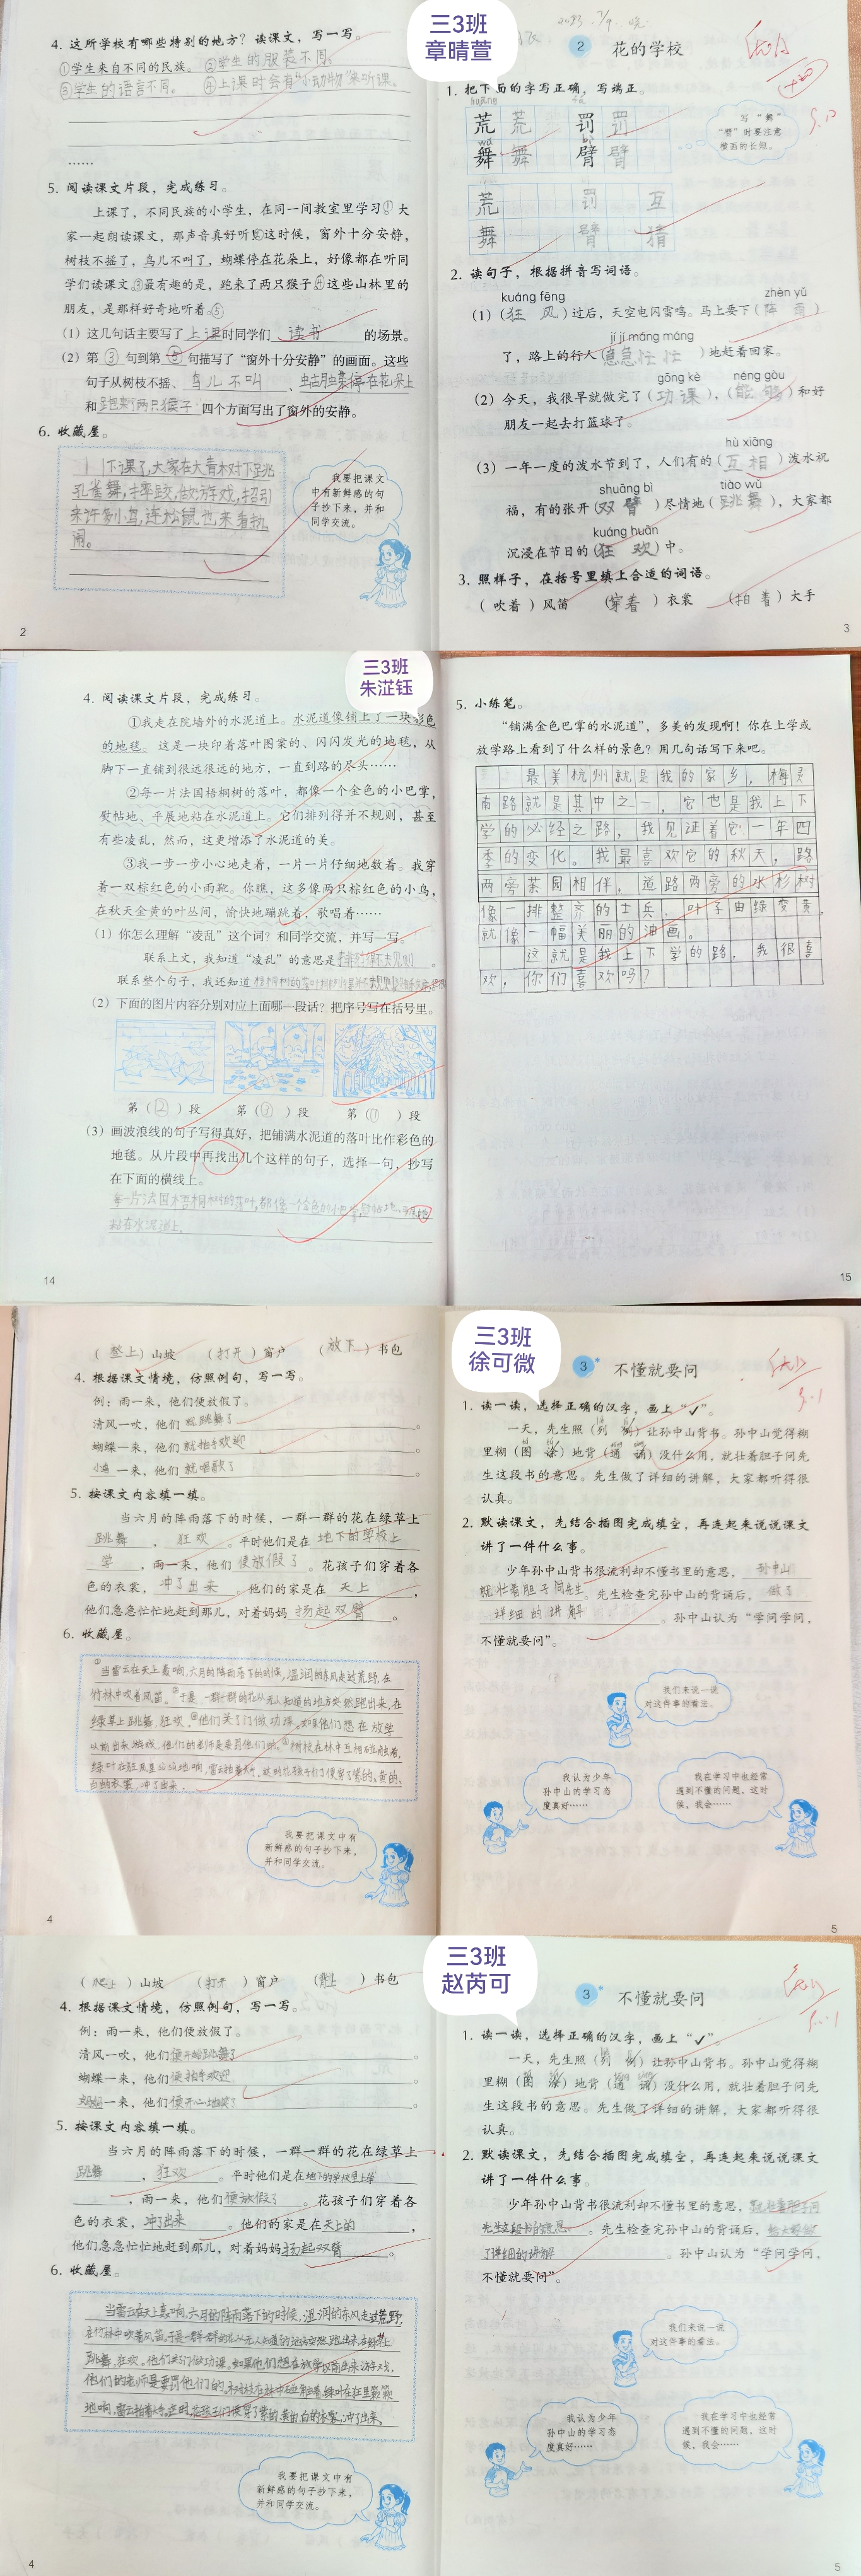 三3班
章晴萱
4. 这所学校有哪些特别的地方？读课文，写一写。
①学生来自不同的民族。②学生的服装不同。
③学生的语言不同。 ④上课时会有“小动物”来听课。
……
5. 阅读课文片段，完成练习。
上课了，不同民族的小学生，在同一间教室里学习①大
家一起朗读课文，那声音真好听②这时候，窗外十分安静，
树枝不摇了，鸟儿不叫了，蝴蝶停在花朵上，好像都在听同
学们读课文③最有趣的是，跑来了两只猴子④这些山林里的
朋友，是那样好奇地听着⑤
（1）这几句话主要写了上课时同学们 读书 的场景。
（2）第③句到第⑤句描写了“窗外十分安静”的画面。这些
句子从树枝不摇、鸟儿不叫、蝴蝶停在花朵上
和跑来了两只猴子四个方面写出了窗外的安静。
6. 收藏屋。
下课了，大家在大青树下跳
孔雀舞，摔跤，做游戏，招引
来许多小鸟，连松鼠也来看热
闹。
我要把课文
中有新鲜感的句
子抄下来，并和
同学交流。
2
2 花的学校
1. 把下面的字写正确，写端正。
荒 荒 罚 罚
舞 舞 臂 臂
写“舞”
“臂”时要注意
横画的长短。
荒 罚 互
舞 臂 猜
2. 读句子，根据拼音写词语。
kuáng fēng zhèn yǔ
（1）（狂 风）过后，天空电闪雷鸣。马上要下（阵 雨）
jí jí máng máng
了，路上的行人（急急忙忙）地赶着回家。
gōng kè néng gòu
（2）今天，我很早就做完了（功课），（能够）和好
朋友一起去打篮球了。
hù xiāng
（3）一年一度的泼水节到了，人们有的（互相）泼水祝
shuāng bì tiào wǔ
福，有的张开（双臂）尽情地（跳舞），大家都
kuáng huān
沉浸在节日的（狂 欢）中。
3. 照样子，在括号里填上合适的词语。
（吹着）风笛 （穿着）衣裳 （拍着）大手
3
三3班
朱淽钰
4. 阅读课文片段，完成练习。
①我走在院墙外的水泥道上。水泥道像铺上了一块彩色
的地毯。这是一块印着落叶图案的、闪闪发光的地毯，从
脚下一直铺到很远很远的地方，一直到路的尽头……
②每一片法国梧桐树的落叶，都像一个金色的小巴掌，
熨帖地、平展地粘在水泥道上。它们排列得并不规则，甚至
有些凌乱，然而，这更增添了水泥道的美。
③我一步一步小心地走着，一片一片仔细地数着。我穿
着一双棕红色的小雨靴。你瞧，这多像两只棕红色的小鸟，
在秋天金黄的叶丛间，愉快地蹦跳着，歌唱着……
（1）你怎么理解“凌乱”这个词？和同学交流，并写一写。
联系上文，我知道“凌乱”的意思是
联系整个句子，我还知道
（2）下面的图片内容分别对应上面哪一段话？把序号写在括号里。
第（②）段 第（③）段 第（①）段
（3）画波浪线的句子写得真好，把铺满水泥道的落叶比作彩色的
地毯。从片段中再找出几个这样的句子，选择一句，抄写
在下面的横线上。
每一片法国梧桐树的落叶，都像一个金色的小巴掌，熨帖地、平展地
粘在水泥道上。
14
5. 小练笔。
“铺满金色巴掌的水泥道”，多美的发现啊！你在上学或
放学路上看到了什么样的景色？用几句话写下来吧。
最美杭州就是我的家乡，梅灵
南路就是其中之一，它也是我上下
学的必经之路，我见证着它一年四
季的变化。我最喜欢它的秋天，路
两旁茶园相伴，道路两旁的水杉树
像一排整齐的士兵，叶子由绿变黄，
就像一幅美丽的油画。
这就是我上下学的路，我很喜
欢，你们喜欢吗？
15
三3班
徐可微
（登上）山坡 （打开）窗户 （放下）书包
4. 根据课文情境，仿照例句，写一写。
例：雨一来，他们便放假了。
清风一吹，他们就跳舞了。
蝴蝶一来，他们就拍手欢迎。
小鸟一来，他们就唱歌了。
5. 按课文内容填一填。
当六月的阵雨落下的时候，一群一群的花在绿草上
跳舞，狂欢。平时他们是在地下的学校上
学，雨一来，他们便放假了。花孩子们穿着各
色的衣裳，冲了出来。他们的家是在天上，
他们急急忙忙地赶到那儿，对着妈妈扬起双臂。
6. 收藏屋。
①当雷云在天上轰响，六月的阵雨落下的时候，湿润的东风走过荒野，在
竹林中吹着风笛。②于是，一群一群的花从无人知道的地方突然跑出来，在
绿草上跳舞、狂欢。③他们关了门做功课。如果他们想在放学
以前出来游戏，他们的老师是要罚他们的。④树枝在林中互相碰触着，
绿叶在狂风里簌簌地响，雷云拍着大手。这时花孩子们便穿了紫的、黄的、
白的衣裳，冲了出来。
我要把课文中有
新鲜感的句子抄下来，
并和同学交流。
4
3 不懂就要问
1. 读一读，选择正确的汉字，画上“✓”。
一天，先生照（列 例）让孙中山背书。孙中山觉得糊
里糊（图 涂）地背（通 诵）没什么用，就壮着胆子问先
生这段书的意思。先生做了详细的讲解，大家都听得很
认真。
2. 默读课文，先结合插图完成填空，再连起来说说课文
讲了一件什么事。
少年孙中山背书很流利却不懂书里的意思，孙中山
就壮着胆子问先生。先生检查完孙中山的背诵后，做了
详细的讲解。孙中山认为“学问学问，
不懂就要问”。
我们来说一说
对这件事的看法。
我认为少年
孙中山的学习态
度真好……
我在学习中也经常
遇到不懂的问题，这时
候，我会……
5
三3班
赵芮可
（爬上）山坡 （打开）窗户 （背上）书包
4. 根据课文情境，仿照例句，写一写。
例：雨一来，他们便放假了。
清风一吹，他们便开始跳舞了。
蝴蝶一来，他们便拍手欢迎。
一来，他们便开心地笑了。
5. 按课文内容填一填。
当六月的阵雨落下的时候，一群一群的花在绿草上
跳舞，狂欢。平时他们是在地下的学校里上学
，雨一来，他们便放假了。花孩子们穿着各
色的衣裳，冲了出来。他们的家是在天上的，
他们急急忙忙地赶到那儿，对着妈妈扬起双臂。
6. 收藏屋。
当雷云在天上轰响，六月的阵雨落下的时候，湿润的东风走过荒野，
在竹林中吹着风笛。于是一群一群的花从无人知道的地方突然跑出来，在绿草上
跳舞、狂欢。他们关了门做功课。如果他们想在放学以前出来游戏，
他们的老师是要罚他们的。树枝在林中互相碰触着，绿叶在狂风里簌簌
地响，雷云拍着大手。这时，花孩子们便穿了紫的、黄的、白的衣裳，冲了出来。
我要把课文中有
新鲜感的句子抄下来，
并和同学交流。
4
3 不懂就要问
1. 读一读，选择正确的汉字，画上“✓”。
一天，先生照（列 例）让孙中山背书。孙中山觉得糊
里糊（图 涂）地背（通 诵）没什么用，就壮着胆子问先
生这段书的意思。先生做了详细的讲解，大家都听得很
认真。
2. 默读课文，先结合插图完成填空，再连起来说说课文
讲了一件什么事。
少年孙中山背书很流利却不懂书里的意思，就壮着胆子问
先生这段书的意思。先生检查完孙中山的背诵后，
了详细的讲解。孙中山认为“学问学问，
不懂就要问”。
我们来说一说
对这件事的看法。
我认为少年
孙中山的学习态
度真好……
我在学习中也经常
遇到不懂的问题，这时
候，我会……
5